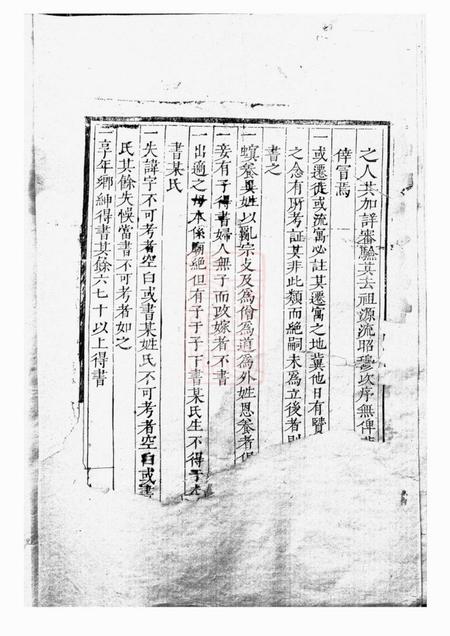 之人共加詳審驗其去祖源流昭穆次序無俾
倖冒焉
一或遷徙或流寓必註其遷寓之地冀他日有賢
之念有所考証其非此類而絕嗣未為立後者則
書之
一螟養異姓以亂宗支及為僧為道為外姓恩養者俱
一妾有子得書婦人無子而改嫁者不書
一出適之母本係廟絕但有子于子下書某氏生不得于
書某氏
一失諱字不可考者空白或書某姓氏不可考者空白或書
氏其餘失悞當書不可考者如之
一享年鄉紳得書其餘六七十以上得書